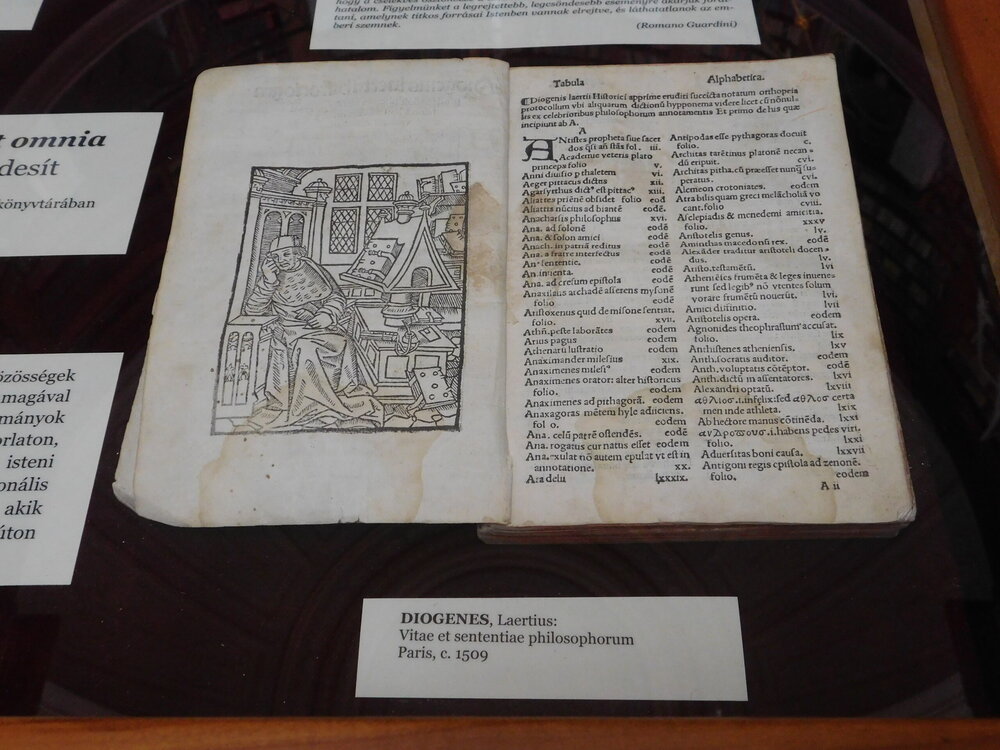 hogy a cselekvés
tani, amelynek titkos forrásai Istenben vannak elrejtve, és láthatatlanok az em-
beri szemnek.
(Romano Guardini)
t omnia
desít
könyvtárában
özösségek
magával
mányok
orlaton,
isteni
onális
akik
úton
Tabula
Alphabetica.
Diogenis laertii Historici apprime eruditi succicta notatum orthopeia
protocollum vbi aliquarum dictionũ hypponema videre licet cũ nõnul-
lis ex celebrioribus philosophorum annotamentis Et primo de his quæ
incipiunt ab A.
A
ANtistes propheta siue sacer
dos fol. iii.
Academie veteris plato
princeps folio v.
Anni diuisio p thaletem vi.
Aeger pittacus dictus xii.
xiii.
Aliattes priẽnẽ obsidet folio eod
Aliattis nũcius ad biantẽ eodẽ.
Anacharsis philosophus xvi.
Ana. ad solonẽ eodẽ
Ana. & solon amici eodẽ
Anach. in patriã reditus eodẽ
Ana. a fratre interfectus eodẽ
An. sententie. eodẽ
An. inuenta. eodẽ
Ana. ad cresum epistola eodẽ
Anaxilaus archadẽ asserens mysonẽ
folio eodẽ
Aristoxenus quid de misone sentiat.
folio. xvii.
Athẽn. peste laborãtes eodem
Arius pagus eodem
Athenarũ lustratio eodem
Anaximander milesius xix.
Anaximenes milesiꝰ eodem
Anaximenes orator: alter historicus
folio. eodem
Anaximenes ad pithagorã. eodem
Anaxagoras mẽtem hyle adiiciens.
folio. eodem
Ana. celũ patrẽ ostendẽs. eodẽ
Ana. rogatus cur natus esset eodem
Ana. exulat nõ autem epulat vt est in
annotatione. xx.
Ara delu lxxxix.
Antipodas esse pythagoras docuit
folio. c.
Architas tarẽtinus platonẽ necan-
dũ eripuit. cvi.
Architas pitha. cũ præesset nunq̃ su-
peratus. cvi.
Alcmeon crotoniates. eodem
Atra bilis quam greci melãcholiã vo
cant. folio cviii.
Asclepiadis & menedemi amicitia.
folio. xxxv
Aristotelis genus. lv.
Aminthas macedonis rex. eodem
Alexãder traditur aristoteli docen-
dus. lv.
Aristo. testamẽtũ. lvi
Atheniẽses frumẽta & leges inuene-
runt sed legibꝰ nõ vtentes solum
vorare frumẽtũ nouerũt. lvi.
Amici difinitio. lvii
Aristotelis opera. eodem
Agnonides theophrastum accusat.
folio. lix
Anthistenes atheniensis. lxv
Anth. socratis auditor. eodem
Anth. voluptatis cõtẽptor. eodẽ
Anth. dictũ in assentatores. lxvi
Alexandri optatũ. lxviii
αθλιος .i. infelix sed αθλος certa
men inde athleta. lxix
Ab hectore manus cõtinẽda. lxxi
.i. habens pedes viri.
lxxi
Aduersitas boni causa. lxxvii
Antigoni regis epistola ad zenonẽ.
folio. eodem
A ii
DIOGENES, Laertius:
Vitae et sententiae philosophorum
Paris, c. 1509